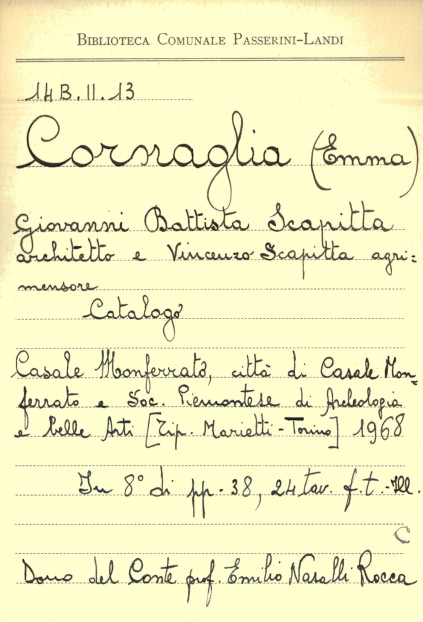 BIBLIOTECA COMUNALE PASSERINI-LANDI
14B.II.13
Cornaglia (Emma)
Giovanni Battista Scapitta
architetto e Vincenzo Scapitta agri=
mensore
Catalogo
Casale Monferrato, città di Casale Mon=
ferrato e Soc. Piemontese di Archeologia
e belle Arti [Tip. Marietti - Torino] 1968
In 8° di pp. 38, 24 tav. f.t. - Ill.
C
Dono del Conte prof. Emilio Nasalli Rocca